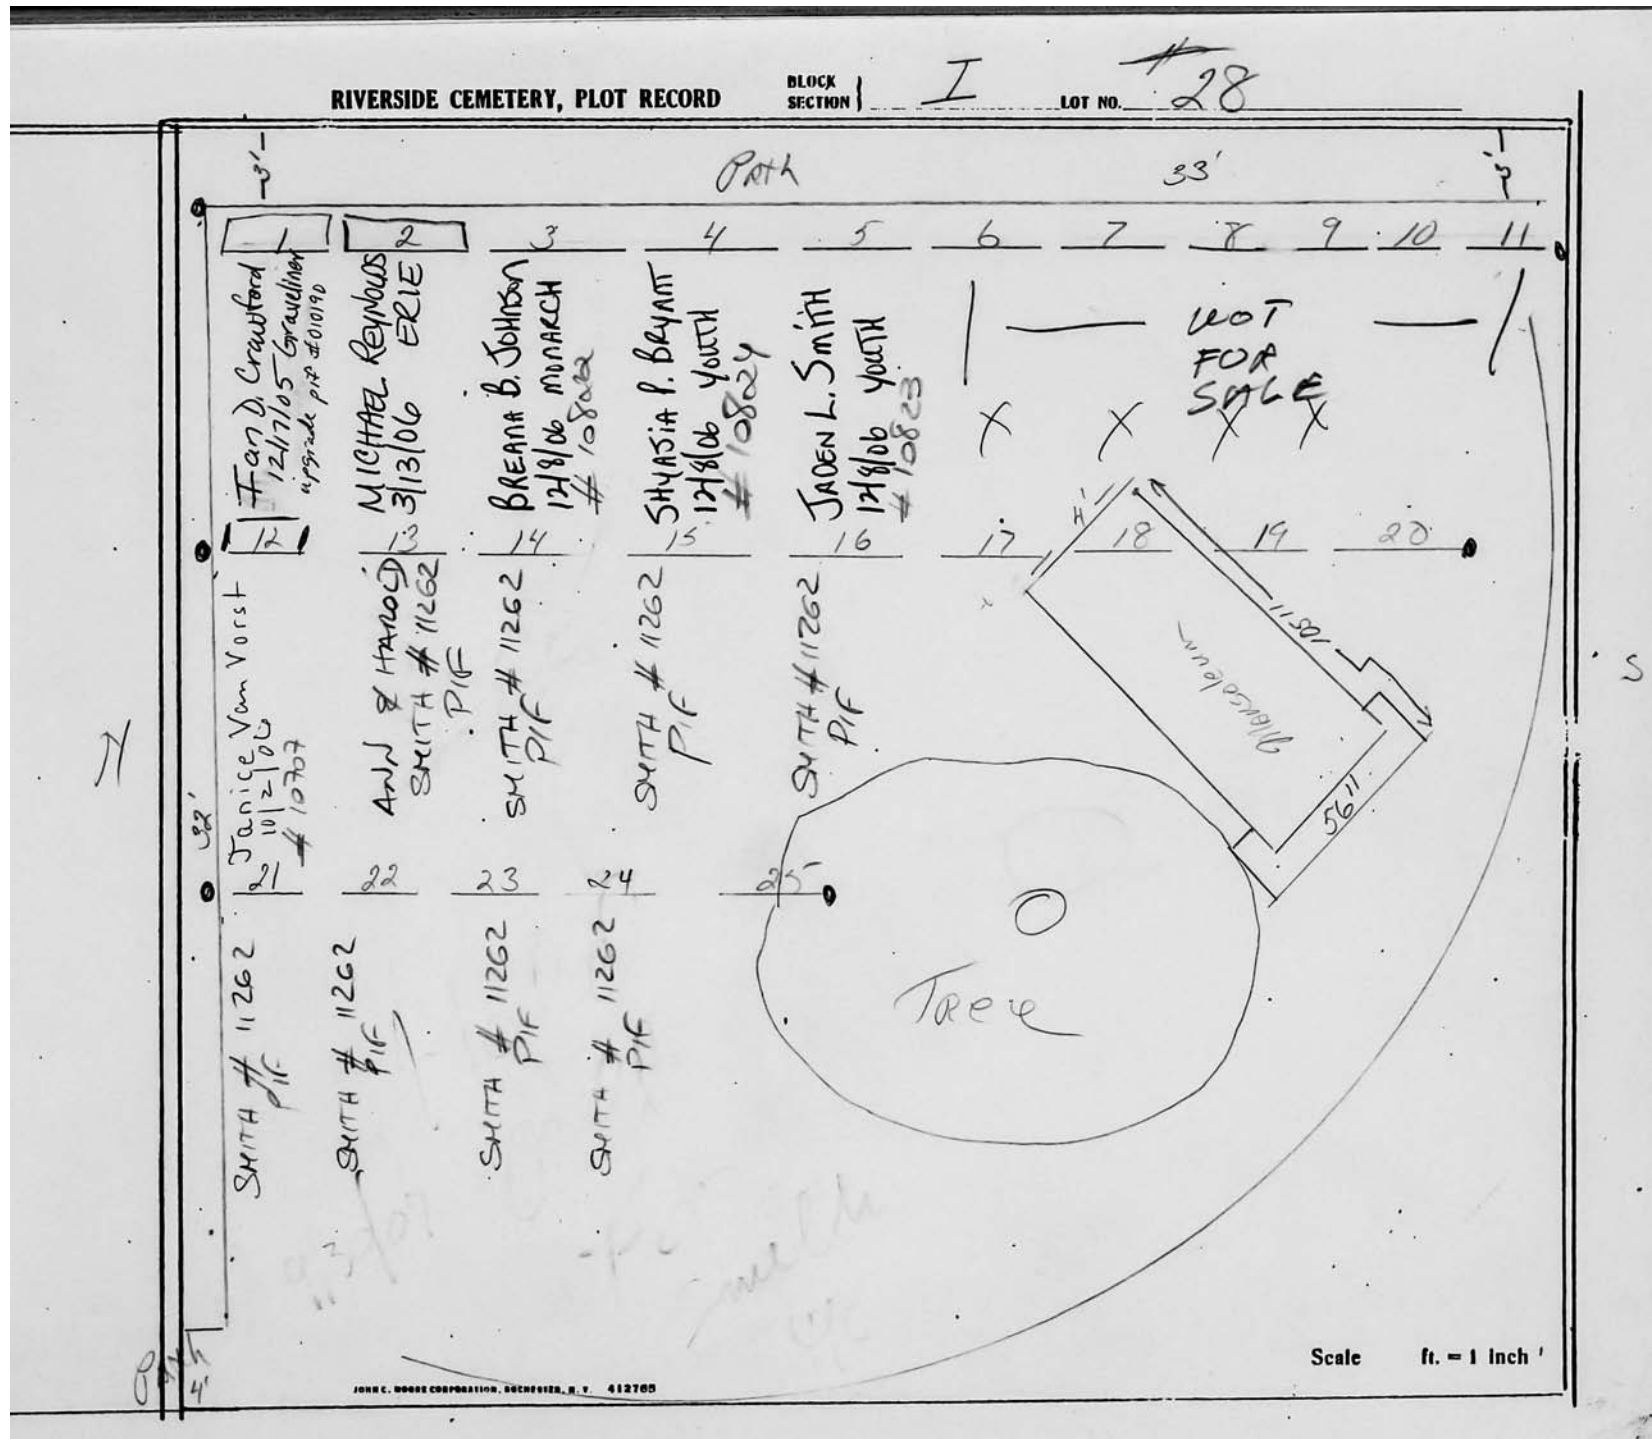 RIVERSIDE CEMETERY, PLOT RECORD
BLOCK
SECTION
I
LOT NO. # 28
3'
Path
33'
3'
1
2
3
4
5
6
7
8
9
10
11
Fan D. Crawford
12/17/05 Graveliner
upgrade pif #010190
MICHAEL Reynolds
3/13/06 ERIE
BREANA B. JOHNSON
12/8/06 MONARCH
# 10822
SHYASIA P. BRYANT
12/8/06 YOUTH
# 10824
JADEN L. SMITH
12/8/06 YOUTH
# 10823
NOT
FOR
SALE
X X X X
12
13
14
15
16
17
18
19
20
Janice Van Vorst
10/2/06
# 10707
ANN & HAROLD
SMITH # 11262
PIF
SMITH # 11262
PIF
SMITH # 11262
PIF
SMITH # 11262
PIF
105"
Mausoleum
56"
32'
21
22
23
24
25
SMITH # 11262
PIF
SMITH # 11262
PIF
SMITH # 11262
PIF
SMITH # 11262
PIF
Tree
S
4'
Scale ft. = 1 Inch
JOHN C. MOORE CORPORATION, ROCHESTER, N. Y. 412765